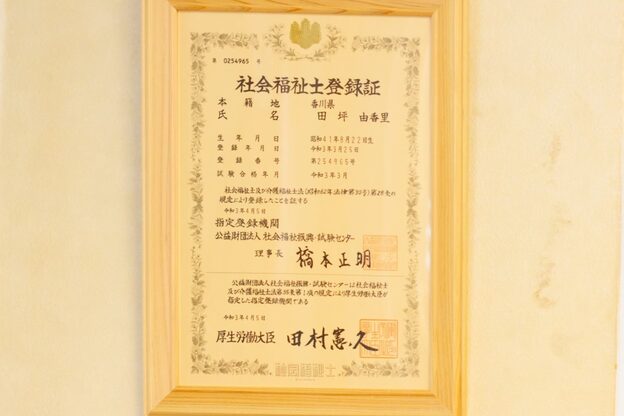 第 0254965 号
社会福祉士登録証
本籍地 香川県
氏名 田坪 由香里
生年月日 昭和41年8月22日生
登録年月日 令和3年3月25日
登録番号 第254965号
試験合格年月 令和3年3月
社会福祉士及び介護福祉士法(昭和62年法律第30号)第28条の
規定により登録したことを証する
令和3年4月5日
指定登録機関
公益財団法人 社会福祉振興・試験センター
理事長 橋本正明
公益財団法人社会福祉振興・試験センターは社会福祉士
及び介護福祉士法第35条第1項の規定により厚生労働大臣が
指定した指定登録機関である
令和3年4月5日
厚生労働大臣 田村憲久